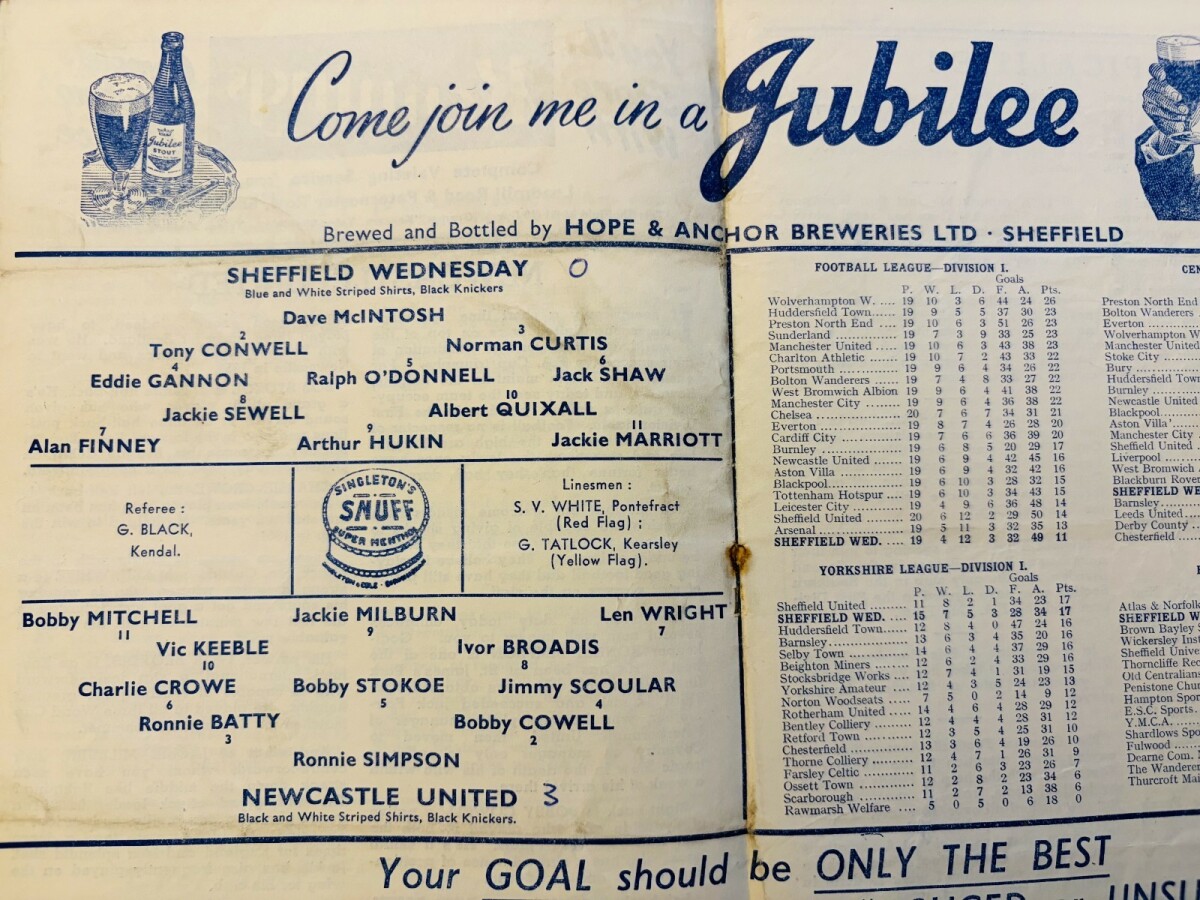 Come join me in a Jubilee
Jubilee
STOUT
Brewed and Bottled by HOPE & ANCHOR BREWERIES LTD · SHEFFIELD
SHEFFIELD WEDNESDAY 0
Blue and White Striped Shirts, Black Knickers
Dave McINTOSH
2 3
Tony CONWELL Norman CURTIS
4 5 6
Eddie GANNON Ralph O'DONNELL Jack SHAW
8 10
Jackie SEWELL Albert QUIXALL
7 9 11
Alan FINNEY Arthur HUKIN Jackie MARRIOTT
Referee :
G. BLACK,
Kendal.
SINGLETON'S
SNUFF
SUPER MENTHOL
Linesmen :
S. V. WHITE, Pontefract
(Red Flag) ;
G. TATLOCK, Kearsley
(Yellow Flag).
Bobby MITCHELL Jackie MILBURN Len WRIGHT
11 9 7
Vic KEEBLE Ivor BROADIS
10 8
Charlie CROWE Bobby STOKOE Jimmy SCOULAR
6 5 4
Ronnie BATTY Bobby COWELL
3 2
Ronnie SIMPSON
NEWCASTLE UNITED 3
Black and White Striped Shirts, Black Knickers.
FOOTBALL LEAGUE—DIVISION I.
Goals
P. W. L. D. F. A. Pts.
Wolverhampton W. .... 19 10 3 6 44 24 26
Huddersfield Town...... 19 9 5 5 37 30 23
Preston North End .... 19 10 6 3 51 26 23
Sunderland .............. 19 7 3 9 33 25 23
Manchester United .... 19 10 6 3 43 38 23
Charlton Athletic ...... 19 10 7 2 43 33 22
Portsmouth .............. 19 9 6 4 34 26 22
Bolton Wanderers ...... 19 7 4 8 33 27 22
West Bromwich Albion 19 9 6 4 41 38 22
Manchester City ........ 19 9 6 4 36 38 22
Chelsea .................. 20 7 6 7 34 31 21
Everton .................. 19 8 7 4 26 28 20
Cardiff City .............. 19 7 6 6 36 39 20
Burnley .................. 19 6 8 5 20 29 17
Newcastle United ....... 19 6 9 4 42 45 16
Aston Villa .............. 19 6 9 4 32 42 16
Blackpool................ 19 6 10 3 28 32 15
Tottenham Hotspur .... 19 6 10 3 34 43 15
Leicester City ........... 19 4 9 6 36 48 14
Sheffield United ........ 20 6 12 2 29 50 14
Arsenal .................. 19 5 11 3 32 35 13
SHEFFIELD WED. .... 19 4 12 3 32 49 11
YORKSHIRE LEAGUE—DIVISION I.
Goals
P. W. L. D. F. A. Pts.
Sheffield United ......... 11 8 2 1 34 23 17
SHEFFIELD WED. .... 15 7 5 3 28 34 17
Huddersfield Town...... 12 8 4 0 47 24 16
Barnsley.................. 13 6 3 4 35 20 16
Selby Town .............. 14 6 4 4 37 29 16
Beighton Miners ........ 12 6 2 4 33 29 16
Stocksbridge Works .... 12 7 4 1 31 19 15
Yorkshire Amateur .... 12 4 3 5 24 23 13
Norton Woodseats ...... 7 5 0 2 14 9 12
Rotherham United ...... 14 4 6 4 28 29 12
Bentley Colliery ........ 12 4 4 4 28 31 12
Retford Town ........... 12 3 5 4 25 31 10
Chesterfield .............. 13 3 6 4 19 26 10
Thorne Colliery ......... 12 4 7 1 26 31 9
Farsley Celtic ........... 11 2 6 3 23 26 7
Ossett Town ............. 12 2 8 2 23 34 6
Scarborough ............. 11 2 7 2 13 38 6
Rawmarsh Welfare .... 5 0 5 0 6 18 0
CEN
Preston North End
Bolton Wanderers
Everton
Wolverhampton W
Manchester United
Stoke City
Bury
Huddersfield Town
Burnley
Newcastle United
Blackpool
Aston Villa
Manchester City
Sheffield United
Liverpool
West Bromwich
Blackburn Rover
SHEFFIELD WE
Barnsley
Leeds United
Derby County
Chesterfield
Atlas & Norfolk
SHEFFIELD W
Brown Bayley S
Wickersley Inst
Sheffield Univer
Thorncliffe Rec
Old Centralians
Penistone Chu
Hampton Spor
E.S.C. Sports.
Y.M.C.A.
Shardlows Spo
Fulwood
Dearne Com.
The Wanderer
Thurcroft Mai
Your GOAL should be ONLY THE BEST